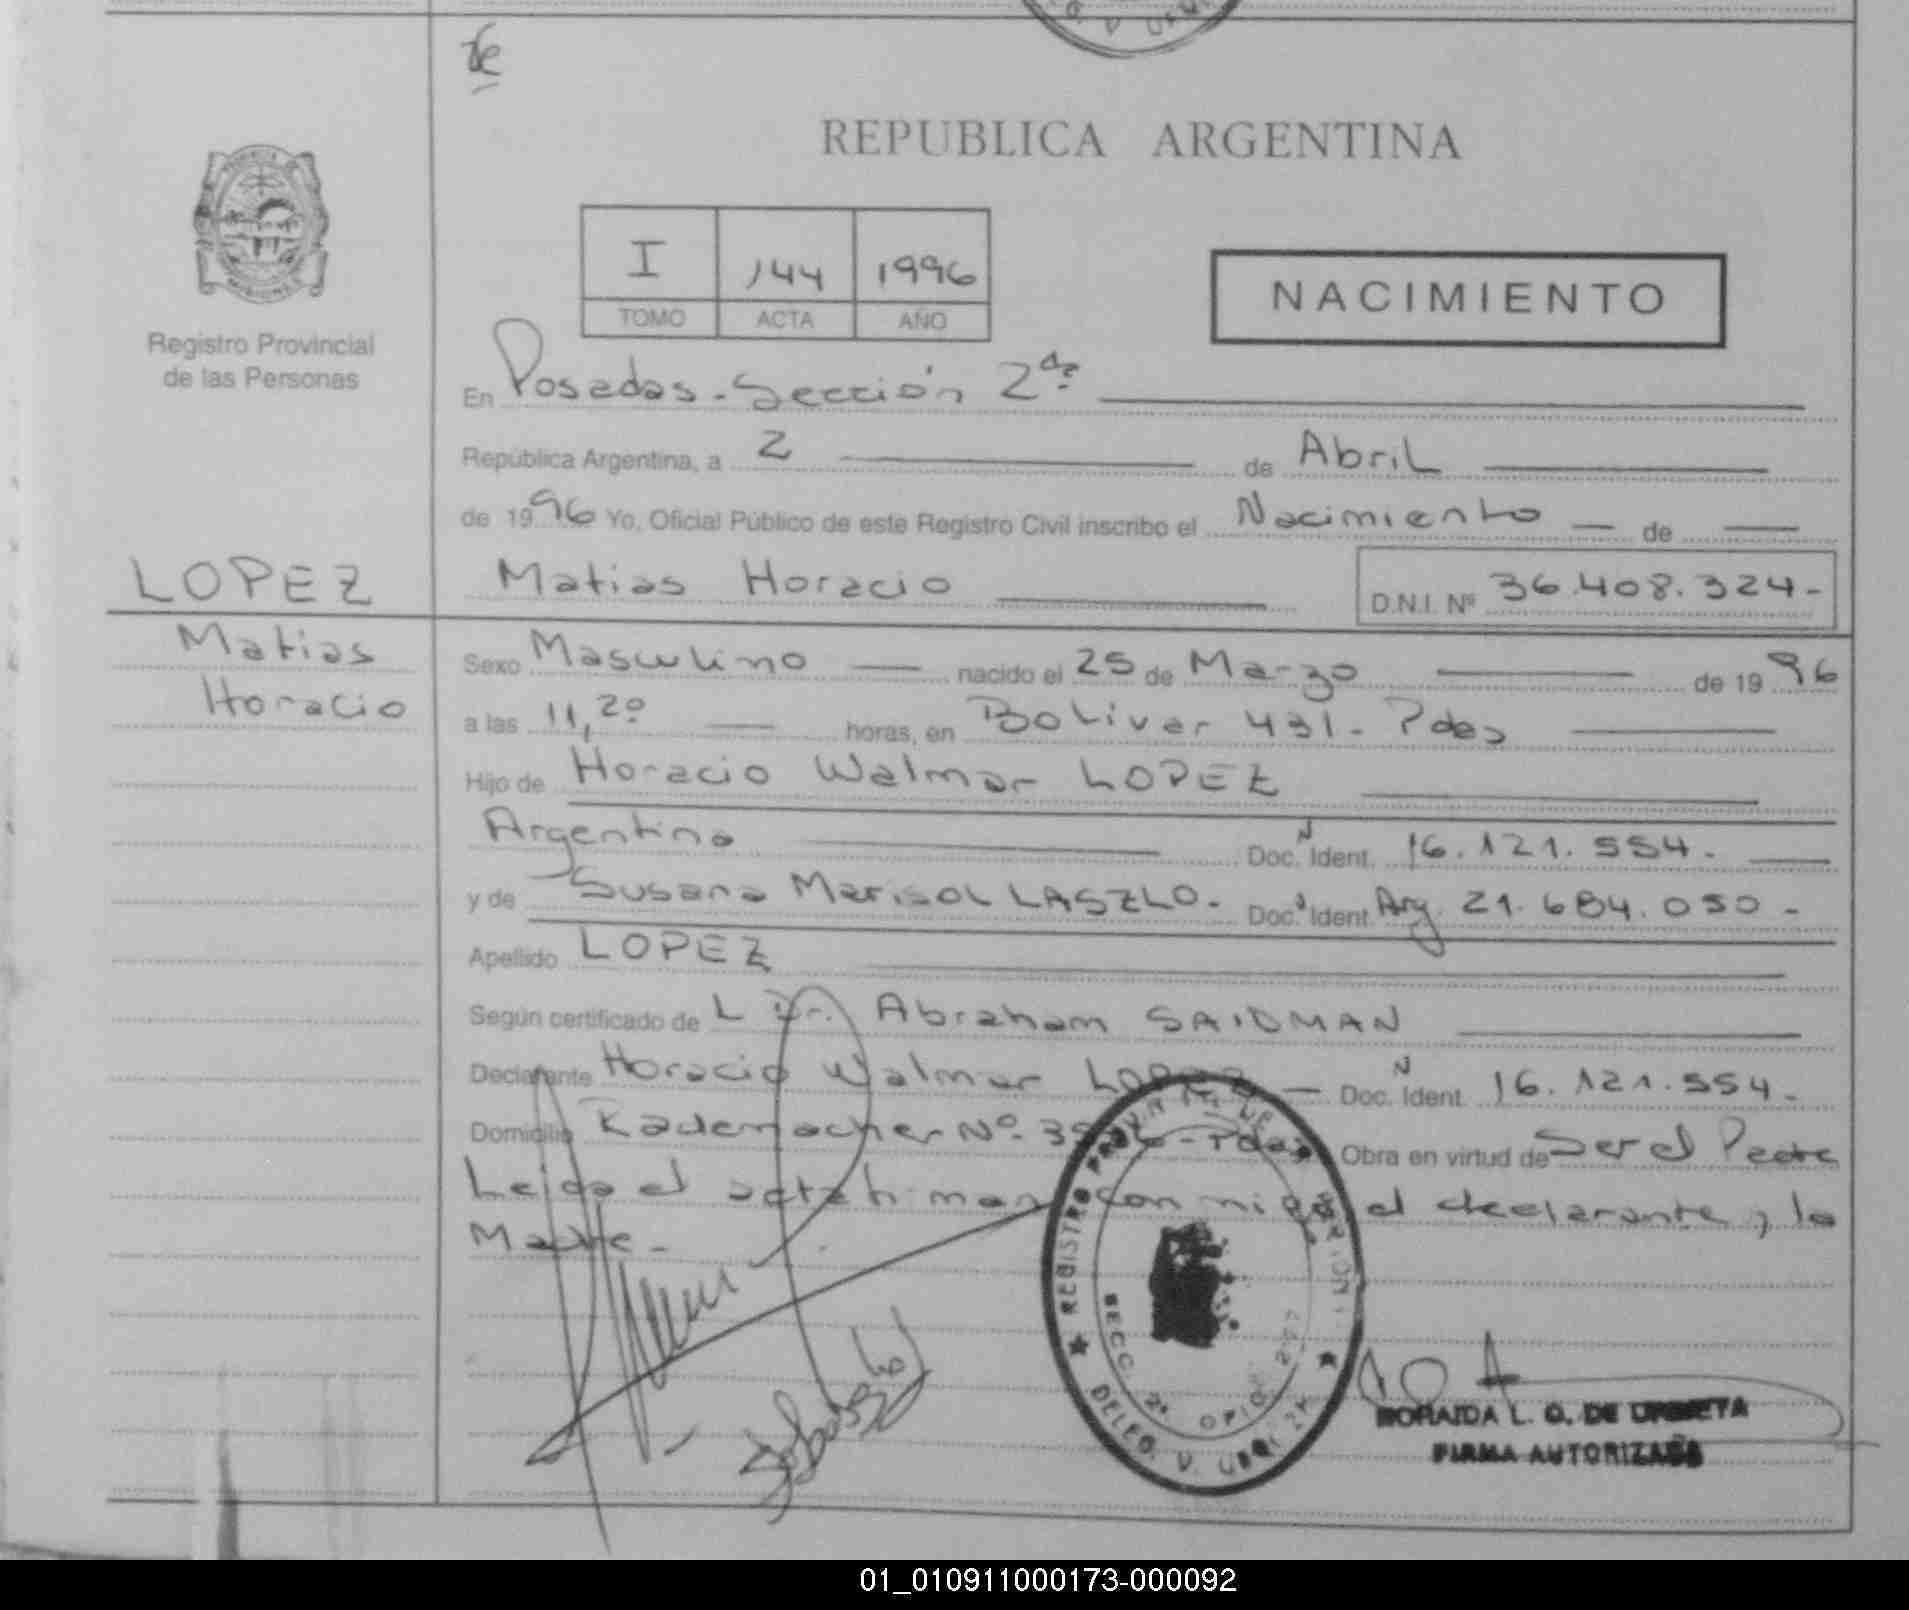 REPUBLICA ARGENTINA
I 144 1996
TOMO ACTA AÑO
NACIMIENTO
Registro Provincial
de las Personas
En Posadas - Sección 2da
República Argentina, a 2 de Abril
de 1996 Yo, Oficial Público de este Registro Civil inscribo el Nacimiento de
LOPEZ
Matias Horacio D.N.I. Nº 36.408.324-
Matias
Horacio
Sexo Masculino nacido el 25 de Marzo de 1996
a las 11,20 horas, en Bolivar 431 - Pdas
Hijo de Horacio Walmar LOPEZ
Argentino Doc. N Ident. 16.121.554.
y de Susana Marisol LASZLO. Doc. Ident. Arg. 21.684.050 -
Apellido LOPEZ
Según certificado de L Dr. Abraham SAIDMAN
Declarante Horacio Walmar LOPEZ - Doc. N Ident. 16.121.554 -
Domicilio Rademacher Nº. - Pdas Obra en virtud de Ser el Padre
Leida el acta firman con migo el declarante, la
Madre -
REGISTRO PROVINCIAL DE
SECC. 2ª
DELEG. V.
L. O. DE
FIRMA AUTORIZADA
01_010911000173-000092